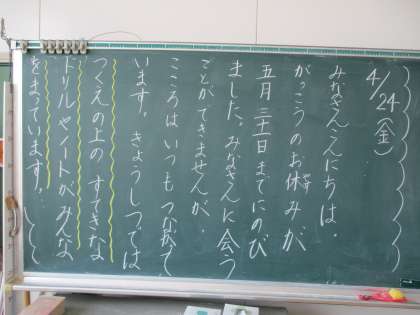 4/24(金)
みなさんこんにちは。
がっこうのお休みが
五月三十一日までにのび
ました。みなさんに会う
ことができませんが、
こころはいつもつながって
います。きょうしつでは
つくえの上のすてきな
ドリルやノートがみんな
をまっています。